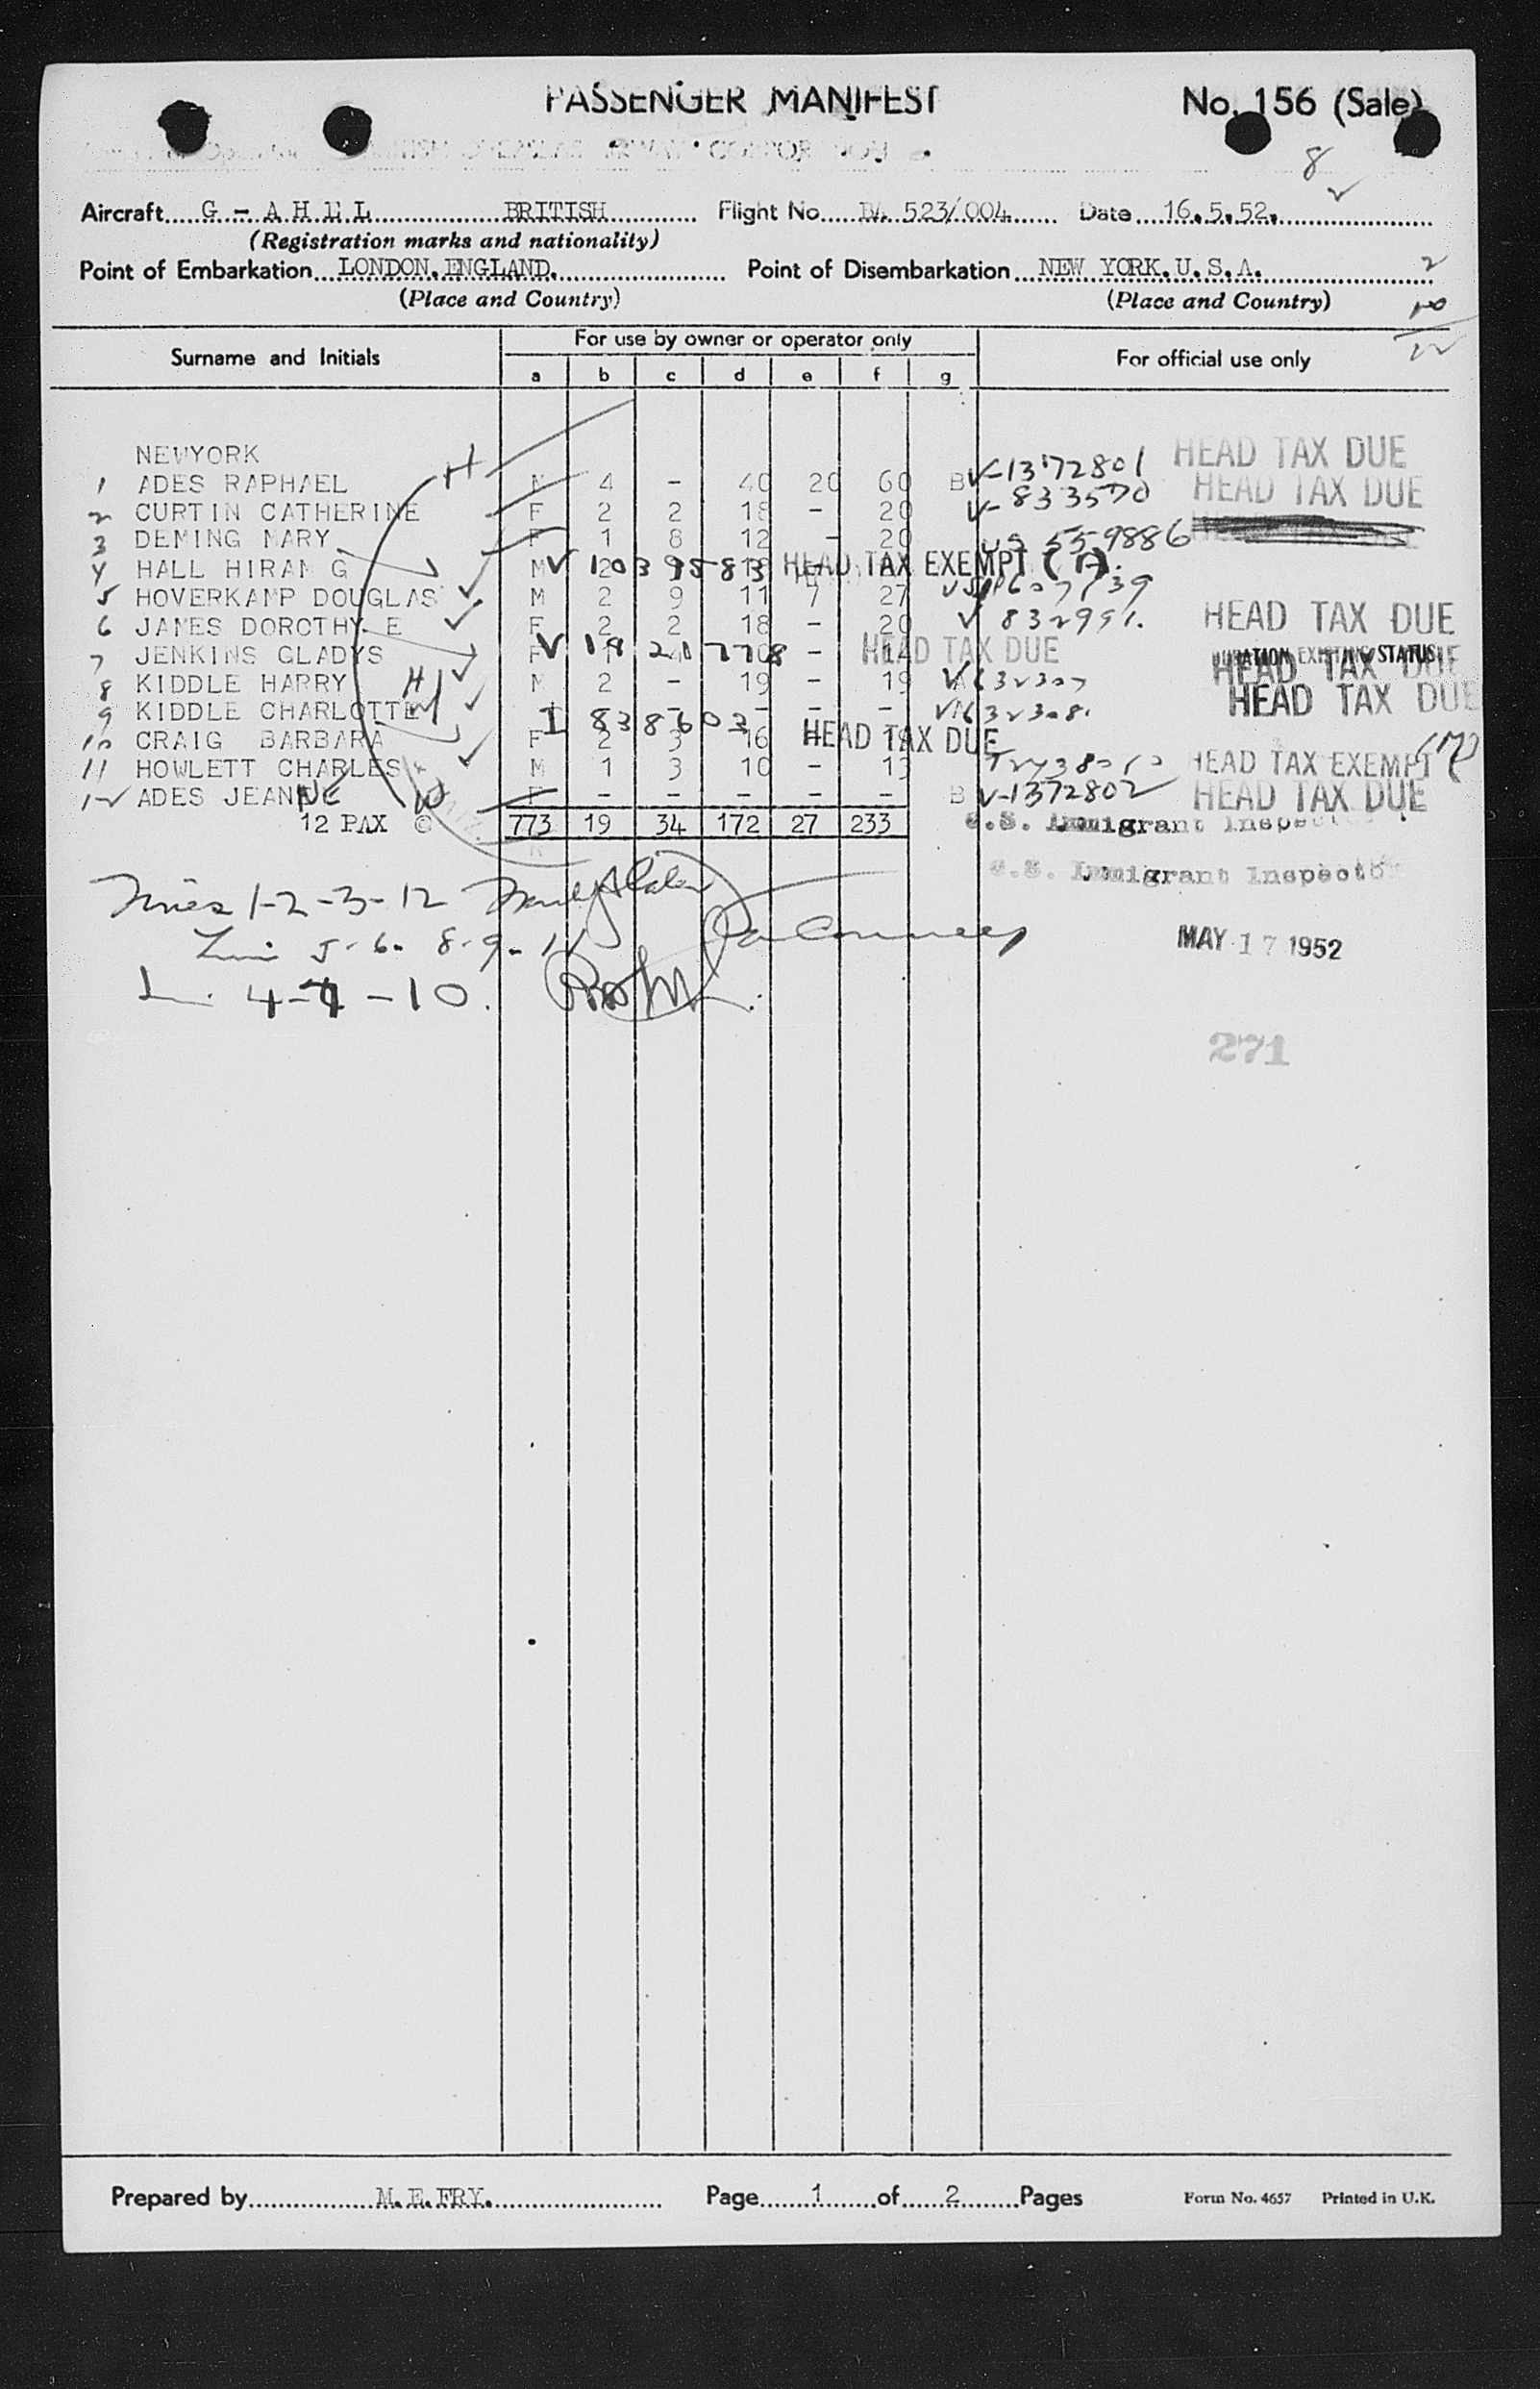 PASSENGER MANIFEST No. 156 (Sale)
8
Aircraft G - A H E L BRITISH Flight No. BA 523/004 Date 16.5.52.
(Registration marks and nationality)
Point of Embarkation LONDON.ENGLAND. Point of Disembarkation NEW YORK.U.S.A. 2
(Place and Country) (Place and Country)
For use by owner or operator only
Surname and Initials a b c d e f g For official use only
NEWYORK HEAD TAX DUE
1 ADES RAPHAEL M 4 - 40 20 60 B V-1372801
2 CURTIN CATHERINE F 2 2 18 - 20 V-833570 HEAD TAX DUE
3 DEMING MARY F 1 8 12 - 20 US 559886
4 HALL HIRAM G M 2 V 1039583 HEAD TAX EXEMPT
5 HOVERKAMP DOUGLAS M 2 9 11 7 27
6 JAMES DOROTHY E F 2 2 18 - 20 V 832991. HEAD TAX DUE
7 JENKINS GLADYS F V 1921778 - HEAD TAX DUE STATUS
8 KIDDLE HARRY M 2 - 19 - 19 V1632307 HEAD TAX DUE
9 KIDDLE CHARLOTTE - - - - - V1632308. HEAD TAX DUE
10 CRAIG BARBARA F 2 3 16 I 838603 HEAD TAX DUE
11 HOWLETT CHARLES M 1 3 10 - 13 HEAD TAX EXEMPT
12 ADES JEANNE F - - - - - B V-1372802 HEAD TAX DUE
12 PAX © 773 19 34 172 27 233 U.S. Immigrant Inspector
U.S. Immigrant Inspector
Lines 1-2-3-12
5-6-8-9-11
MAY 17 1952
L. 4-7-10.
271
Prepared by M.E.FRY. Page 1 of 2 Pages Form No. 4657 Printed in U.K.